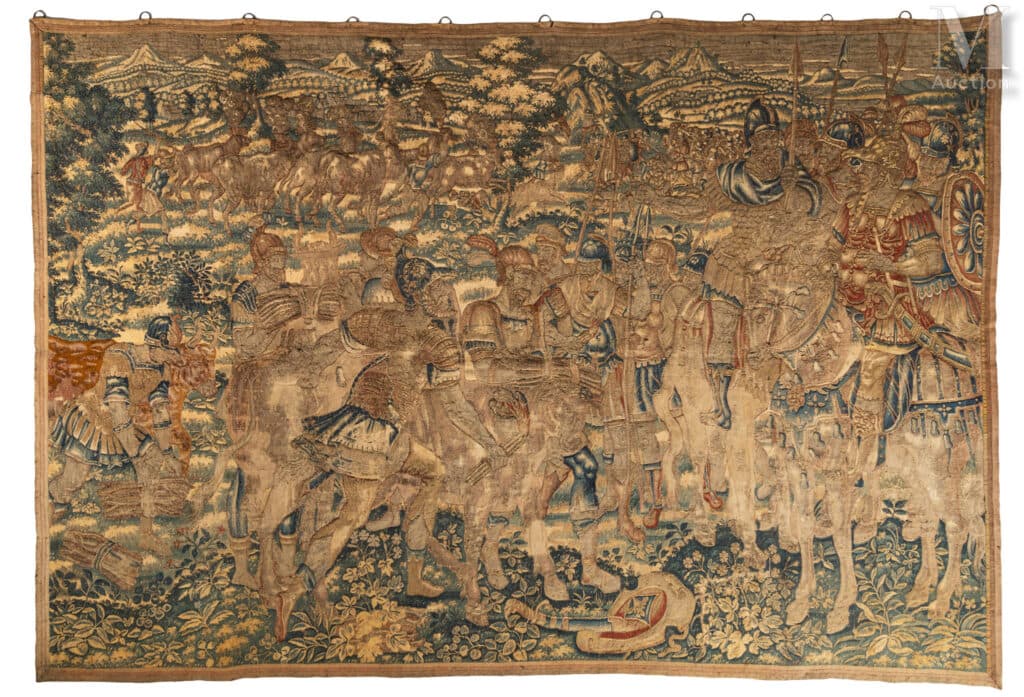 M
Auction